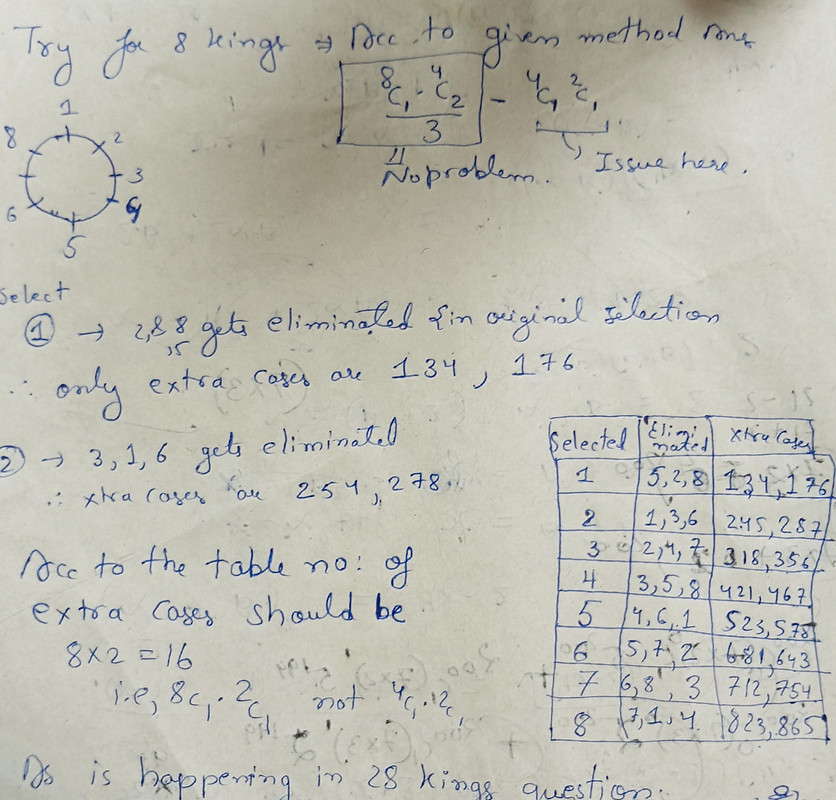 Try for 8 kings ⇒ Acc. to given method ans
8C1 · 4C2 / 3 - 4C1 2C1
No problem.
Issue here.
1
8
2
3
4
6
5
Select
① → 2,& 8 gets eliminated {in original selection
,5
∴ only extra cases are 134, 176
② → 3,1,6 gets eliminated
∴ xtra cases are 254, 278.
Acc to the table no: of
extra cases should be
8×2 = 16
i.e, 8C1 · 2C1 not 4C1 · 2C1
As is happening in 28 kings question.
Selected | Elimi nated | Xtra Cases
1 | 5,2,8 | 134, 176
2 | 1,3,6 | 245, 287
3 | 2,4,7 | 318, 356
4 | 3,5,8 | 421, 467
5 | 4,6,1 | 523, 578
6 | 5,7,2 | 681, 643
7 | 6,8,3 | 712, 754
8 | 7,1,4 | 823, 865